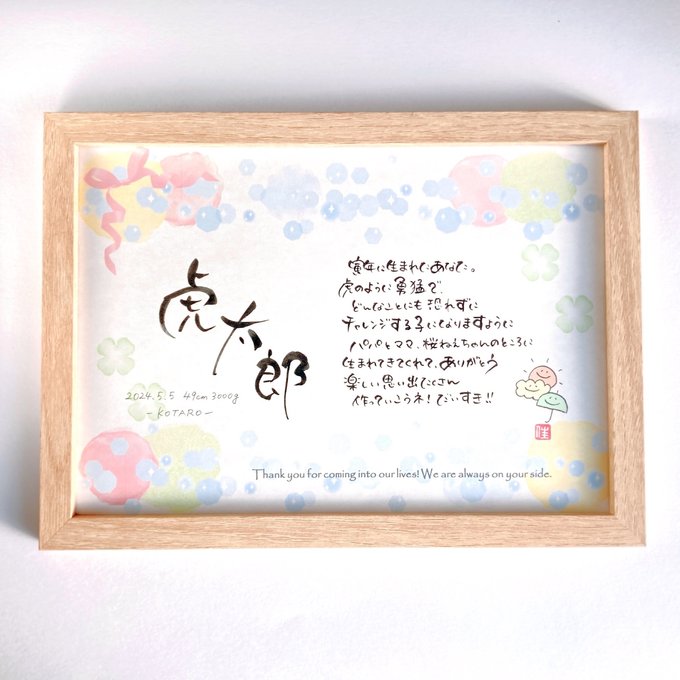 虎太郎
2024.5.5 49cm 3000g
-KOTARO-
寅年に生まれたあなた。
虎のように勇猛で、
どんなことにも恐れずに
チャレンジする子になりますように
パパとママ、桜ねえちゃんのところに
生まれてきてくれて、ありがとう
楽しい思い出たくさん
作っていこうネ!だいすき!!
佳
Thank you for coming into our lives! We are always on your side.